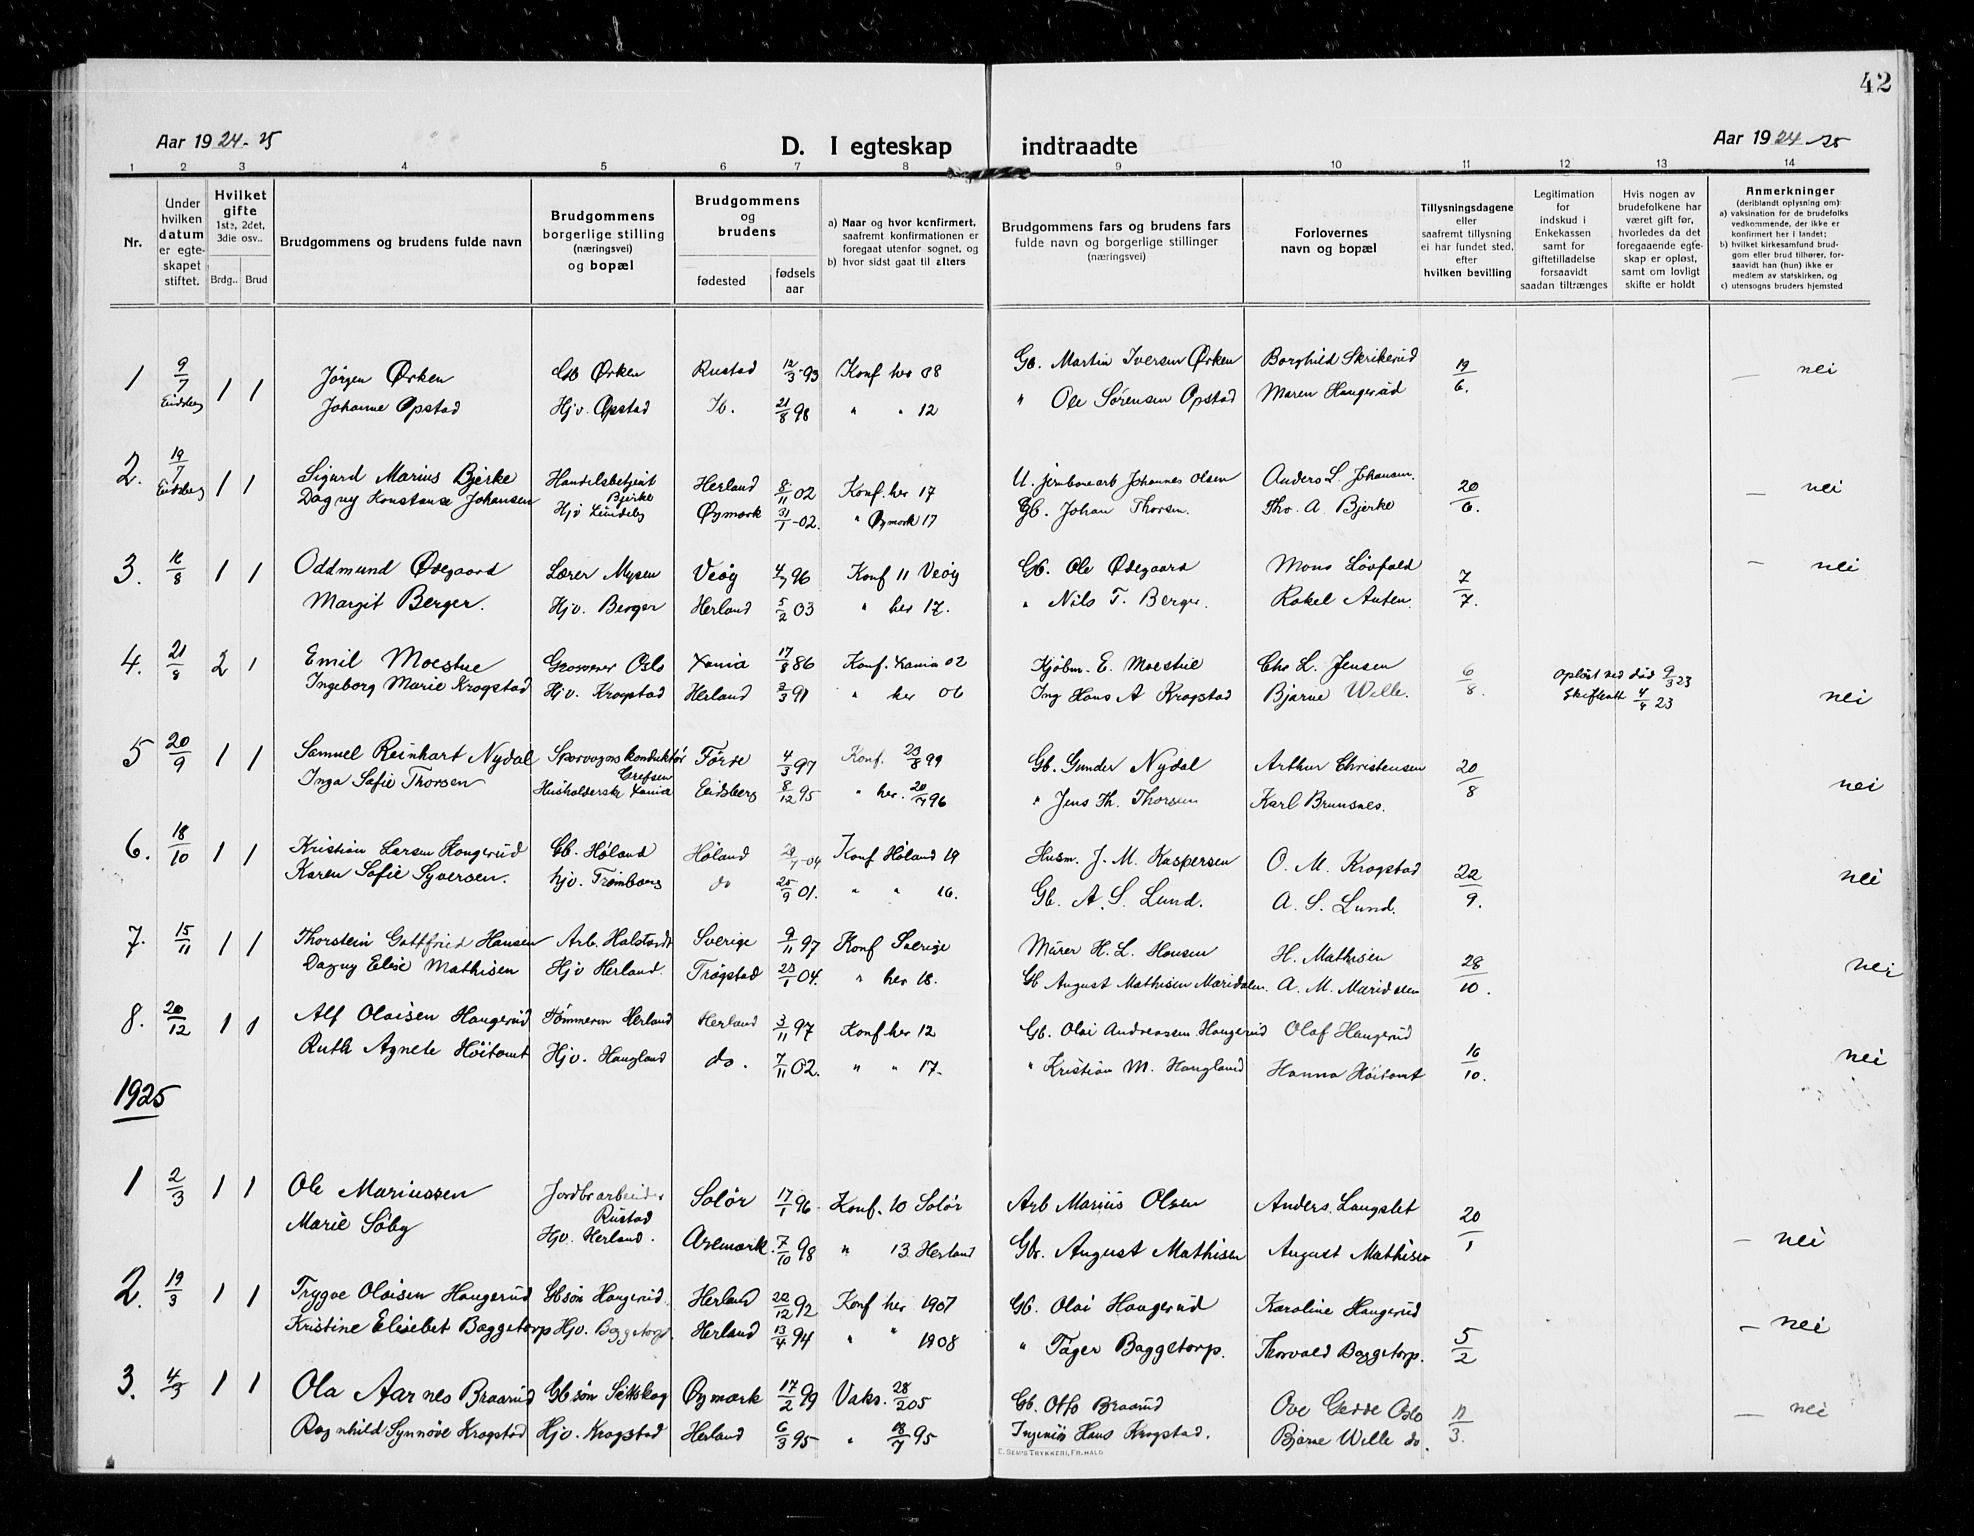 42
Aar 1924-25
D. I egteskap indtraadte
Aar 1924-25
1 2 3 4 5 6 7 8 9 10 11 12 13 14
Nr.
Under hvilken datum er egteskapet stiftet.
Hvilket gifte 1ste, 2det, 3die osv..
Brdg.. Brud
Brudgommens og brudens fulde navn
Brudgommens borgerlige stilling (næringsvei) og bopæl
Brudgommens og brudens
fødested
fødsels aar
a) Naar og hvor konfirmert, saafremt konfirmationen er foregaat utenfor sognet, og
b) hvor sidst gaat til alters
Brudgommens fars og brudens fars fulde navn og borgerlige stillinger (næringsvei)
Forlovernes navn og bopæl
Tillysningsdagene eller saafremt tillysning ei har fundet sted, efter hvilken bevilling
Legitimation for indskud i Enkekassen samt for giftetilladelse forsaavidt saadan tiltrænges
Hvis nogen av brudefolkene har været gift før, hvorledes da det foregaaende egteskap er opløst, samt om lovligt skifte er holdt
Anmerkninger (deriblandt oplysning om):
a) vaksination for de brudefolks vedkommende, der ikke er konfirmert her i landet;
b) hvilket kirkesamfund brudgom eller brud tilhører, forsaavidt han (hun) ikke er medlem av statskirken, og
c) utensogns bruders hjemsted
1 9/7 Eidsberg 1 1 Jørgen Ørken Gb Ørken Rustad 12/3-93 Konf her 08 Gb. Martin Iversen Ørken Borghild Skrikerud 19/6. — nei
Johanne Opstad Hjv. Opstad Ib. 21/8 98 " " 12 " Ole Sørensen Opstad Maren Haugerud
2. 19/7 Eidsberg 1 1 Sigurd Marius Bjerke Handelsbetjent Bjerke Herland 8/11 02 Konf. her 17 U. jernbanearb Johannes Olsen Anders L. Johansen. 20/6. — nei
Dagny Konstanse Johansen Hjv Lundeby Øymark 31/1-02. " Øymark 17 Gb. Johan Thorsen. Tho. A. Bjerke
3. 16/8 1 1 Oddmund Ødegaard Lærer Mysen Veøy 4/7 96 Konf 11 Veøy Gb. Ole Ødegaard Mons Løvfald 7/7. — nei
Margit Berger. Hjv. Berger Herland 5/2 03 " her 17. " Nils T. Berger. Rakel Auten.
4. 21/8 2 1 Emil Moestue Grosserer Oslo Xania 17/8 86 Konf. Xania 02 Kjøbm. E. Moestue Chr L. Jensen 6/8. Opløst ved død 9/3 23 nei
Ingeborg Marie Krogstad Hjv. Krogstad Herland 2/3 91 " her 06 Ing Hans A Krogstad Bjarne Wille. Skifteatt 4/4 23
5 20/9 1 1 Samuel Reinhart Nydal Sporvognskonduktør Grefsen Førde 4/3 97 Konf. 23/8 99 Gb. Gunder Nydal Arthur Christensen 20/8 nei
Inga Sofie Thorsen Husholderske Xania Eidsberg 8/12 95 " her. 20/7 96 " Jens Th. Thorsen Karl Brunsnes.
6. 18/10 1 1 Kristian Larsen Kongerud Gb. Høland Høland 29/7-04 Konf Høland 19 Husm. J. M. Kaspersen O. M. Krogstad 22/9. nei
Karen Sofie Syversen. hjv. Trømborg do 25/9 01. " " 16. Gb. A. S. Lund. A. S. Lund.
7. 15/11 1 1 Thorstein Gottfried Hansen Arb. Halstordt Sverige 9/11 97 Konf Sverige Murer H. L. Hansen H. Mathisen 28/10. nei
Dagny Elise Mathisen Hjv Herland. Trøgstad 23/1 04. " her 18. Gb August Mathisen Mæridalen. A. M. Mæridalen
8. 20/12 1 1 Alf Olaisen Haugerud Tømmerm Herland Herland 3/11 97 Konf her 12 Gb. Olai Andreassen Haugerud Olaf Haugerud 16/10. nei
Ruth Agnete Höitomt Hjv. Haugland do. 7/11 02. " " 17. " Kristian M. Haugland Hanna Höitomt
1925
1 2/3 1 1 Ole Mariussen Jordbrarbeider Rustad Solør 17/1 96. Konf. 10 Solør Arb Marius Olsen Anders Langslet 20/1 — nei
Marie Søby Hjv. Herland. Aremark. 7/10 98 " 13 Herland Gbr. August Mathisen August Mathisen
2. 19/3 1 1 Trygve Olaisen Haugerud Gbsøn Haugerud. Herland 22/12 92 Konf her 1907 Gb. Olai Haugerud Karoline Haugerud 5/2 — nei
Kristine Elisebet Baggetorp Hjv. Baggetorp. Herland 13/4 94 " " 1908 " Tager Baggetorp. Thorvald Baggetorp.
3. 4/3 1 1 Ola Aarnes Braarud Gbsøn Setskog Øymark 17/2 99 Vaks. 28/2 05 Gb. Otto Braarud Ove Gedde Oslo 11/3. — nei
Ragnhild Synnøve Krogstad Hjv. Krogstad Herland 6/3 95 " 18/7 95 Ingeniør Hans Krogstad. Bjarne Wille do.
E. SEM'S TRYKKERI, FR.HALD